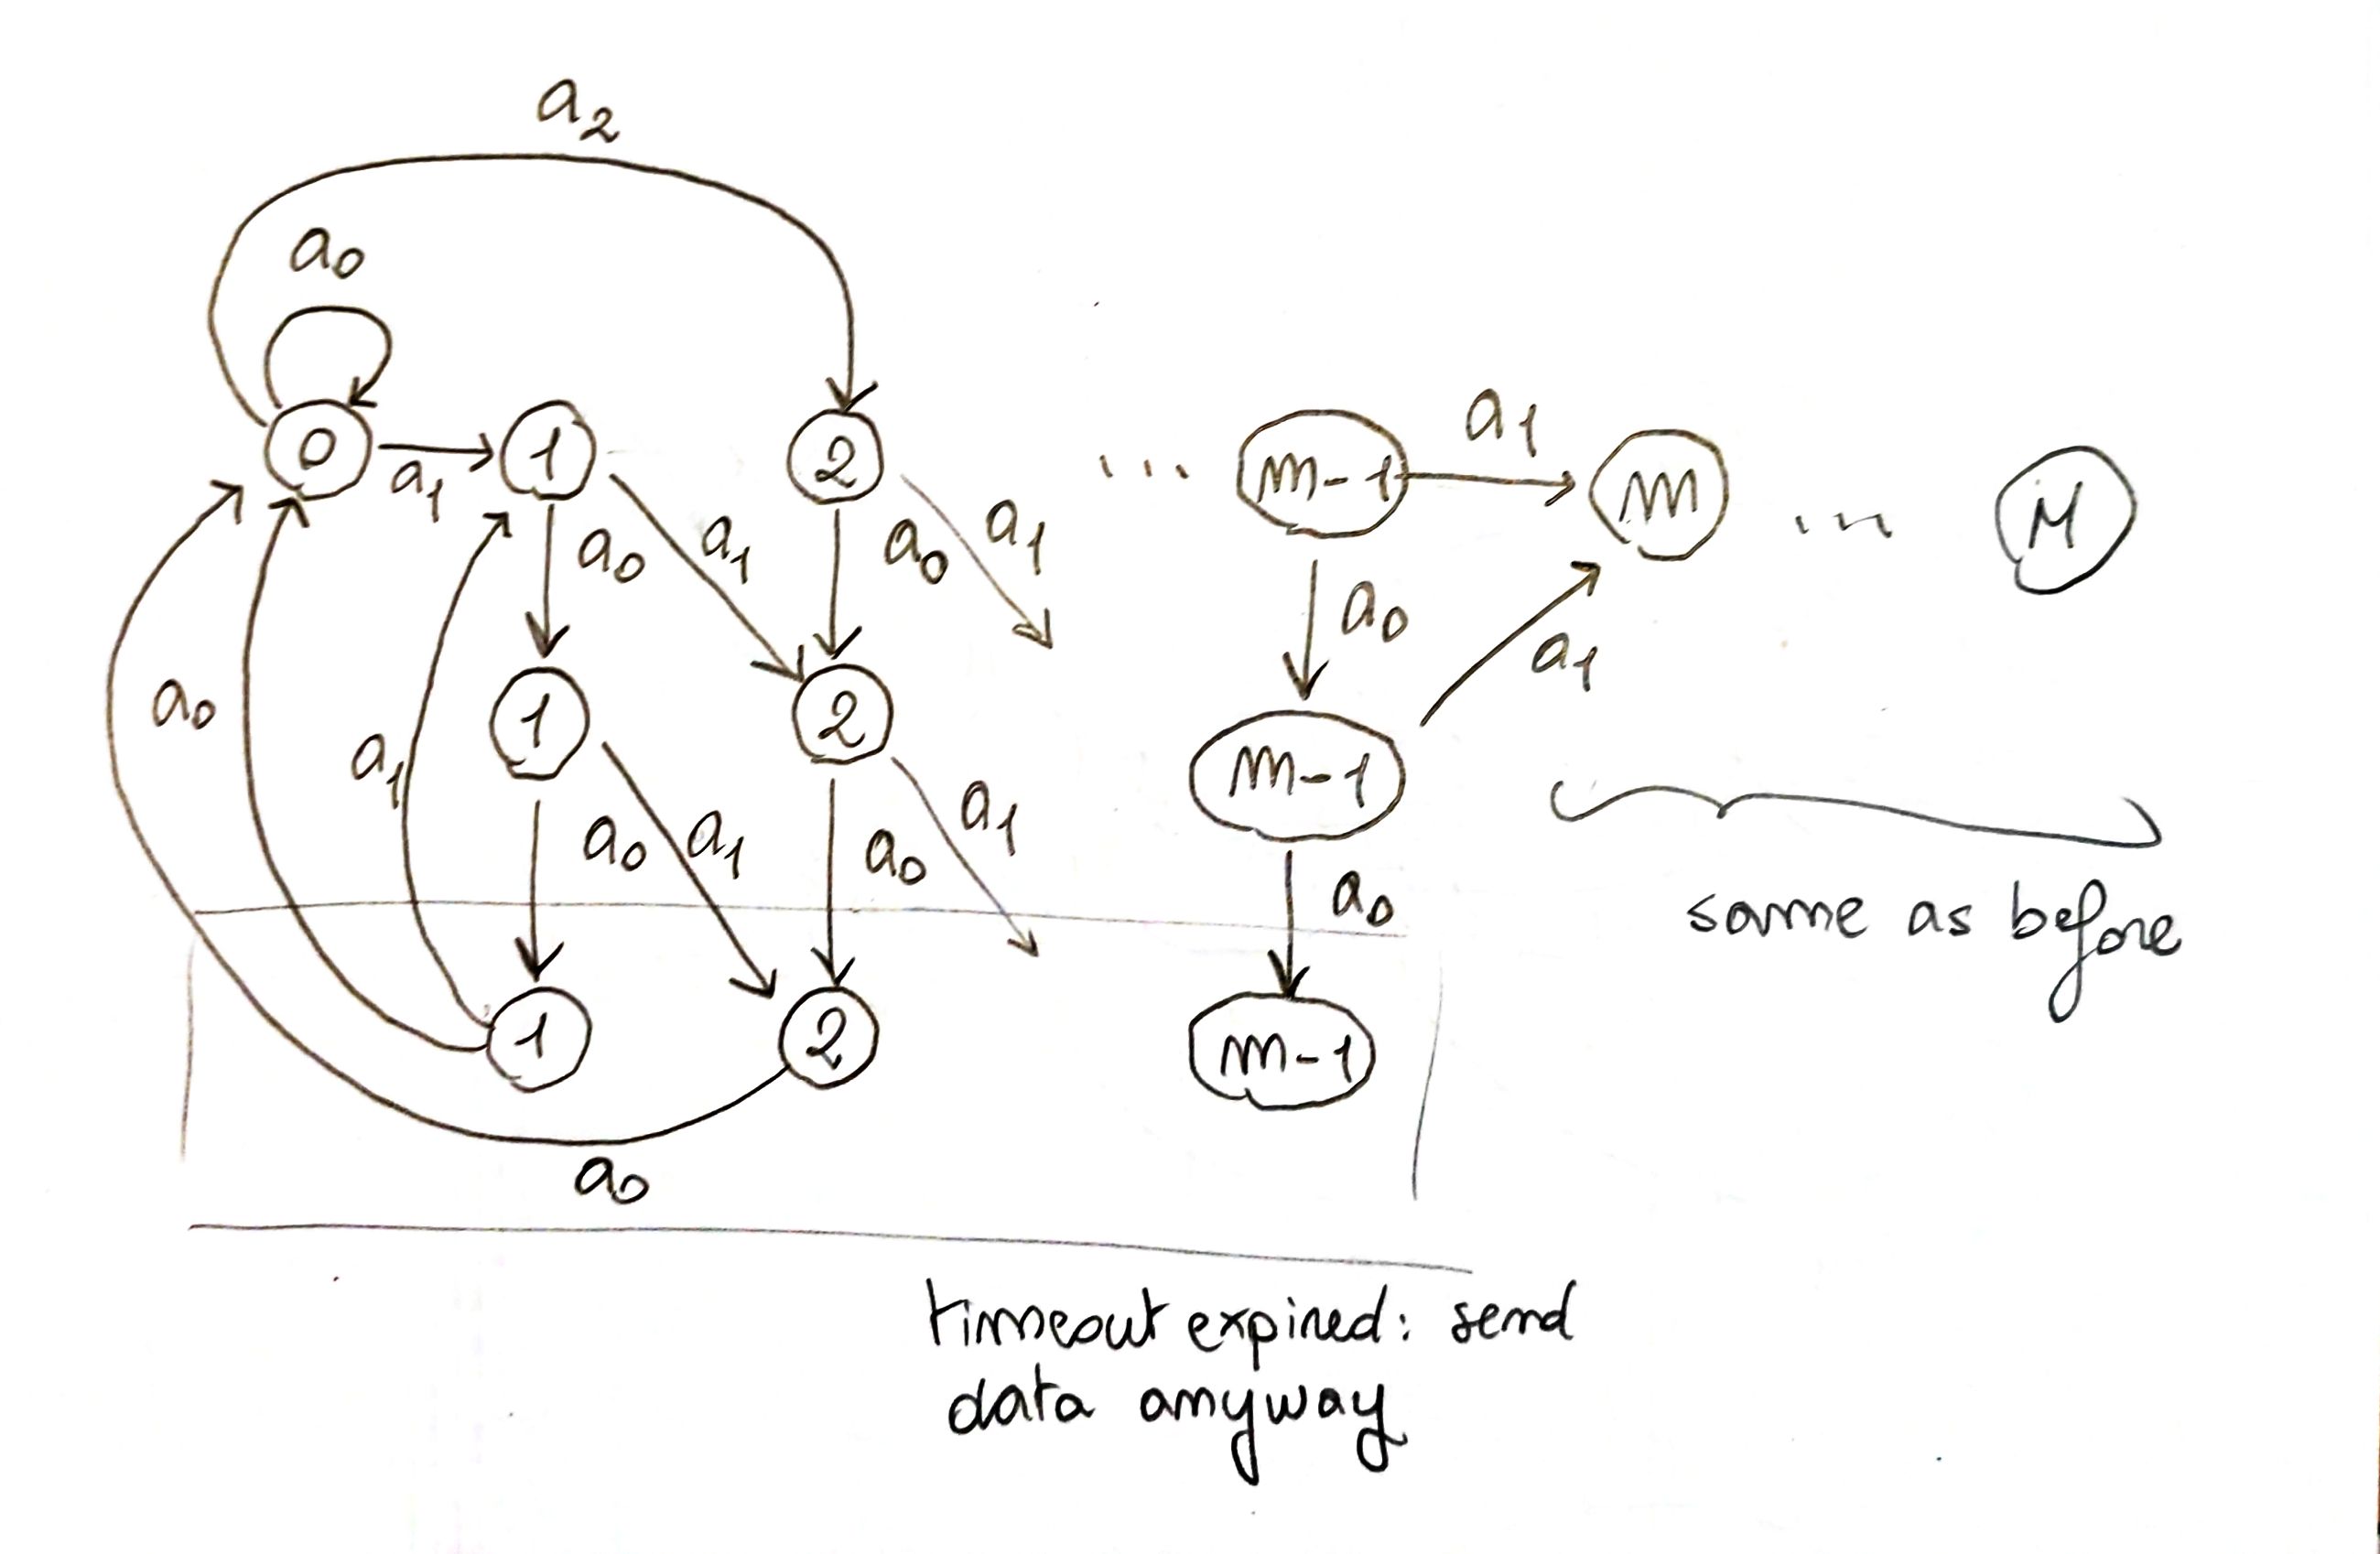 a2
a0
0 a1 1 2 ... m-1 a1 m ... M
a0 a1 a0 a1 a0 a1
a0 a1 1 2 m-1
a0 a1 a0 a1 a0
same as before
1 2 m-1
a0
timeout expired: send
data anyway